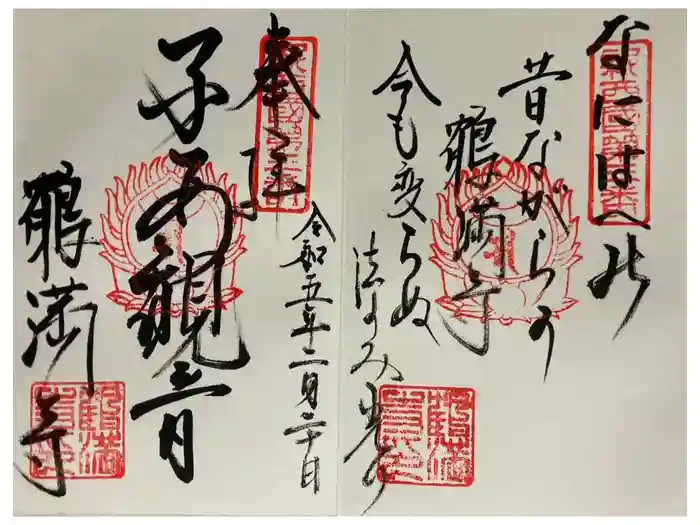 なにはへの
昔ながらの
鶴満寺
今も変らぬ
法のみ光り
奉拝
令和五年二月二十日
子安観音
鶴満寺